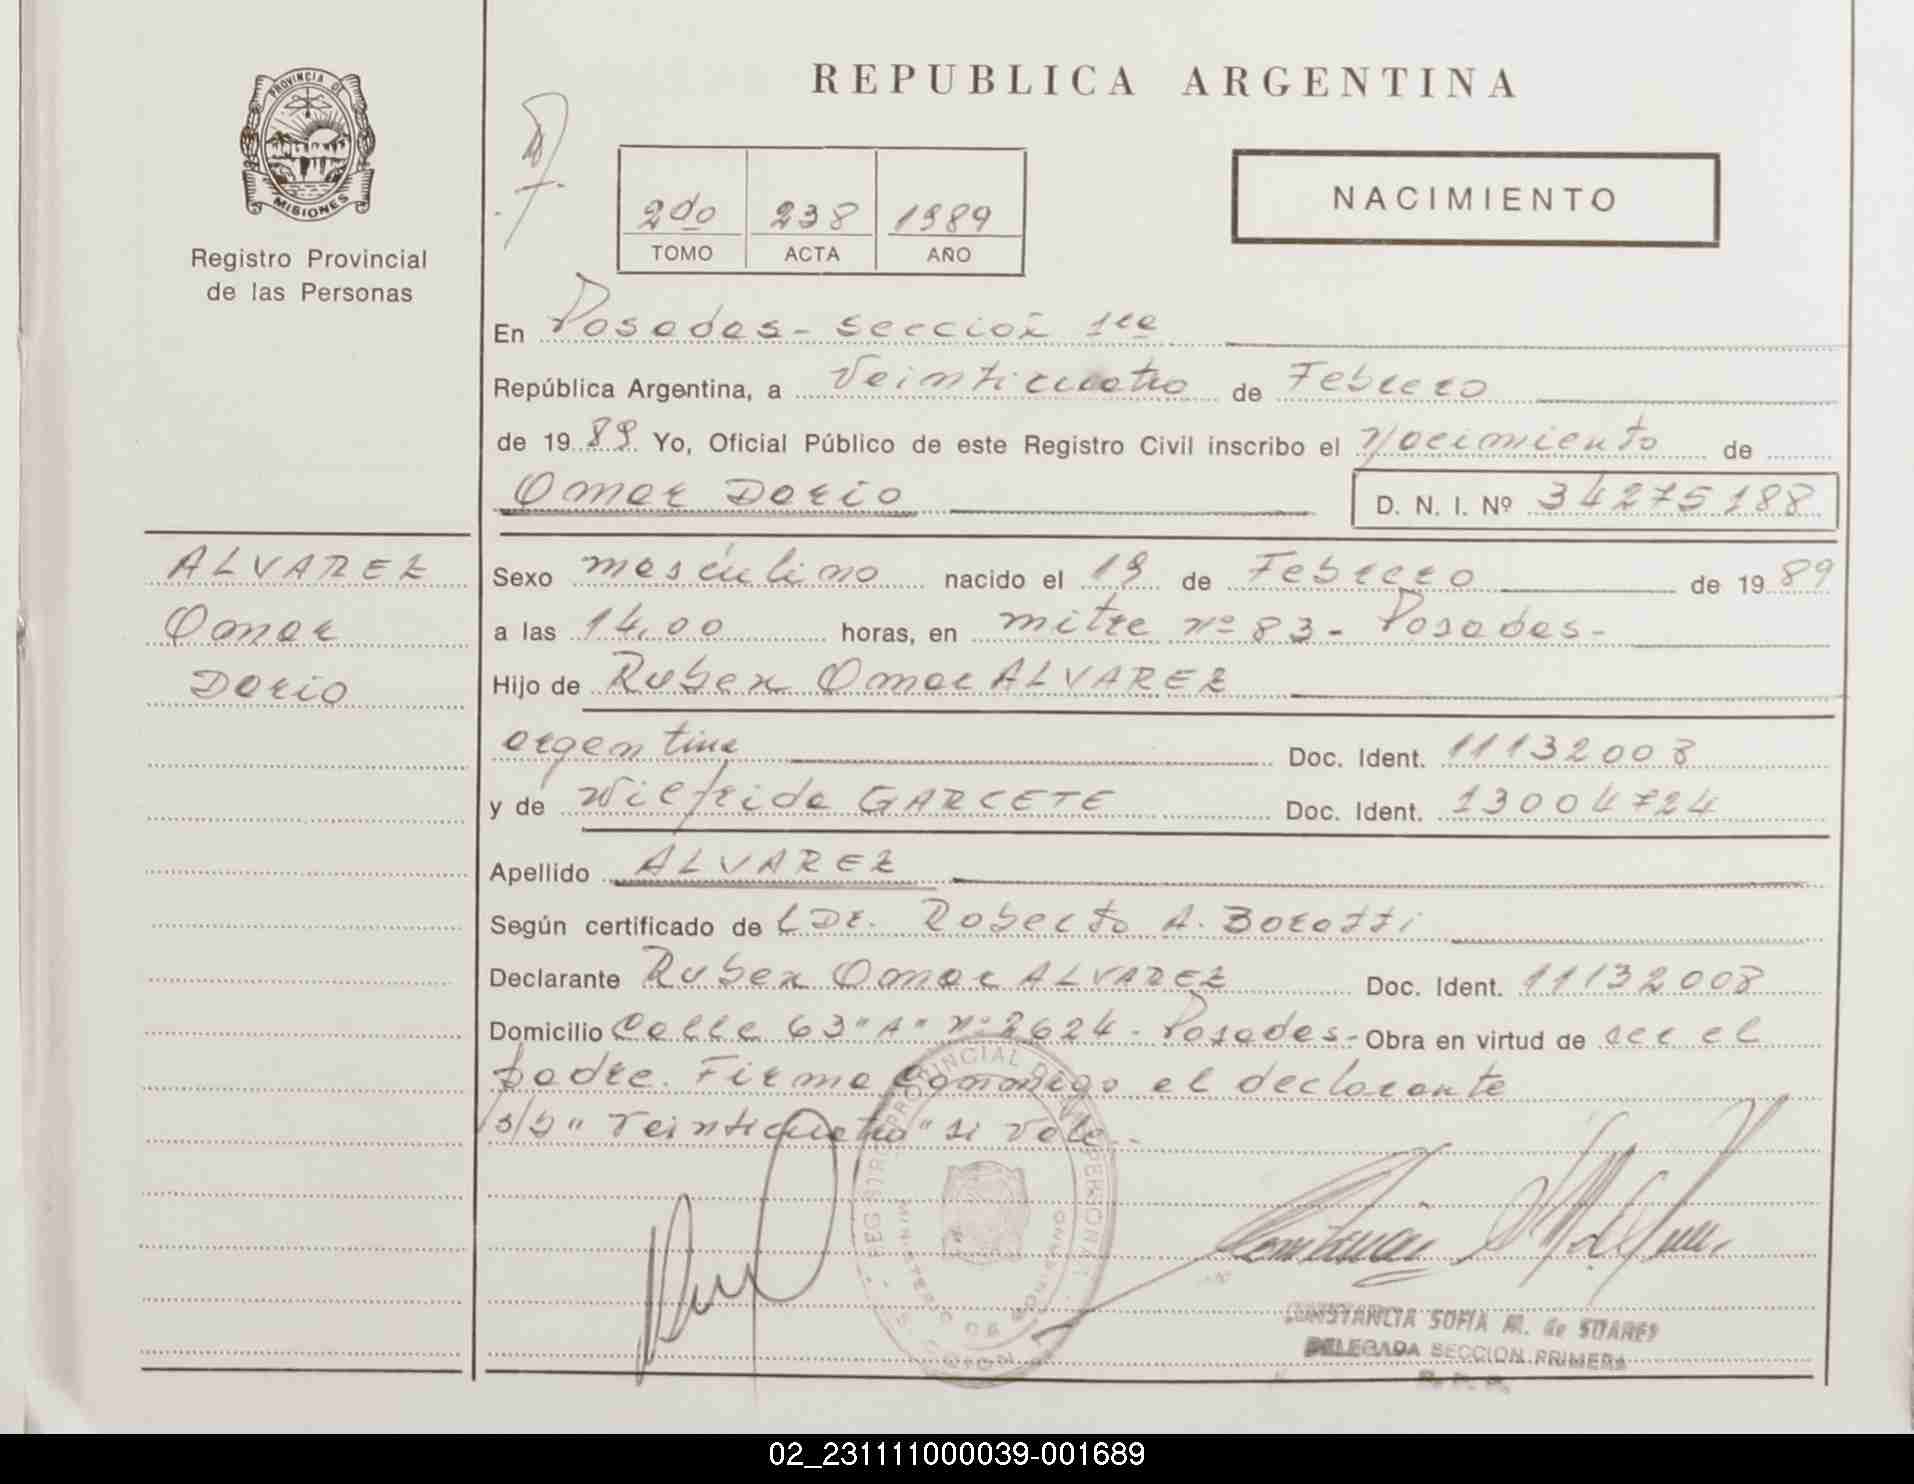 PROVINCIA DE
MISIONES
Registro Provincial
de las Personas
REPUBLICA ARGENTINA
2do 238 1989
TOMO ACTA AÑO
NACIMIENTO
En Posadas - sección 1ra
República Argentina, a Veinticuatro de Febrero
de 1989 Yo, Oficial Público de este Registro Civil inscribo el nacimiento de
Omar Dario D. N. I. Nº 34275188
ALVAREZ
Omar
Dario
Sexo masculino nacido el 19 de Febrero de 1989
a las 14,00 horas, en mitre nº 83 - Posadas -
Hijo de Ruben Omar ALVAREZ
argentina Doc. Ident. 11132008
y de Wilfrida GARCETE Doc. Ident. 13004724
Apellido ALVAREZ
Según certificado de Dr. Roberto A.
Declarante Ruben Omar ALVAREZ Doc. Ident. 11132008
Domicilio Calle 63 "A" nº 2624 - Posadas - Obra en virtud de ser el
padre. Firma conmigo el declarante
s/b "Veinticuatro" si vale -
REGISTRO PROVINCIAL DE LAS PERSONAS
MINISTERIO DE GOBIERNO
MISIONES
CONSTANCIA SOFIA M. de SUARES
DELEGADA SECCION PRIMERA
R. P. P.
02_231111000039-001689